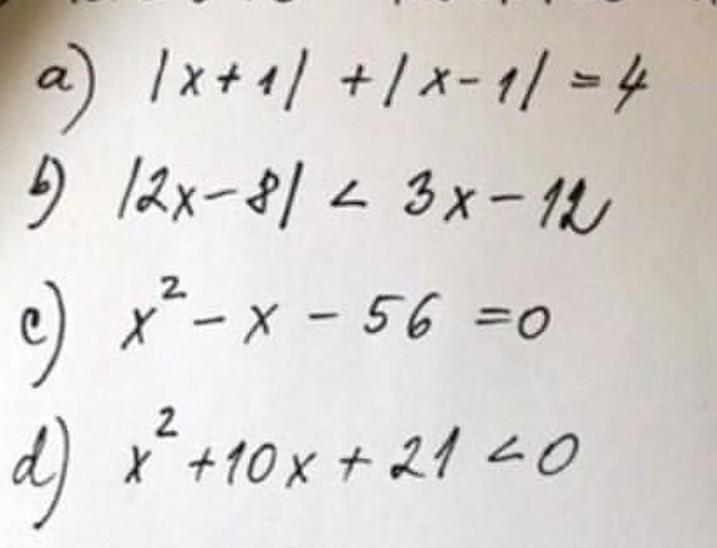 a) |x+1| + |x-1| = 4
b) |2x-8| < 3x-12
c) x²-x-56=0
d) x²+10x+21<0